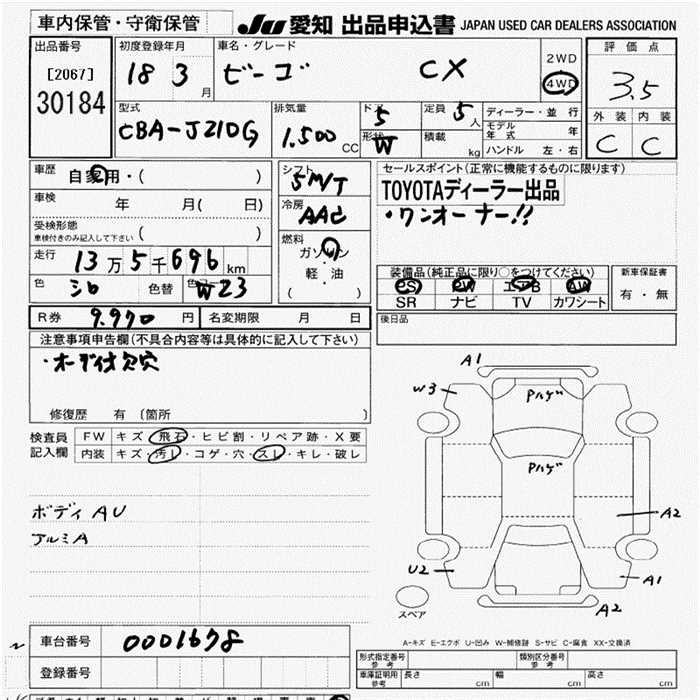 車内保管・守衛保管
JU 愛知 出品申込書 JAPAN USED CAR DEALERS ASSOCIATION
出品番号 [2067] 30184
初度登録年月 18 3 月
車名・グレード ビーゴ CX
2WD
4WD
評価点 3.5
外装 C
内装 C
型式 CBA-J210G
排気量 1.500 CC
ドア 5
形状 W
定員 5 人
積載 kg
ディーラー・並行
モデル年式 年
ハンドル 左・右
車歴 自家用・( )
車検 年 月( 日)
受検形態 車検付きのみ記入して下さい ( )
走行 13万5千696km
色 シロ 色替 W23
シフト 5M/T
冷房 AAC
燃料 ガソリン
軽・油
( )
セールスポイント(正常に機能するものに限ります)
TOYOTAディーラー出品
・ワンオーナー!!
装備品(純正品に限り○をつけてください)
PS PW エアB AW
SR ナビ TV カワシート
新車保証書
有・無
R券 9.970 円 名変期限 月 日
後日品
注意事項申告欄(不具合内容等は具体的に記入して下さい)
・オーディオ欠穴
修復歴 有 〔箇所 〕
検査員記入欄
FW キズ・飛石・ヒビ割・リペア跡・X要
内装 キズ・汚レ・コゲ・穴・スレ・キレ・破レ
ボディ AU
アルミA
A1
W3
Pハゲ
Pハゲ
A2
U2
A1
A2
スペア
A-キズ E-エクボ U-凹み W-補修跡 S-サビ C-腐食 XX-交換済
車台番号 0001678
登録番号
形式指定番号 参考
類別区分番号 参考
車庫証明用 参考 長さ cm 幅 cm 高さ cm